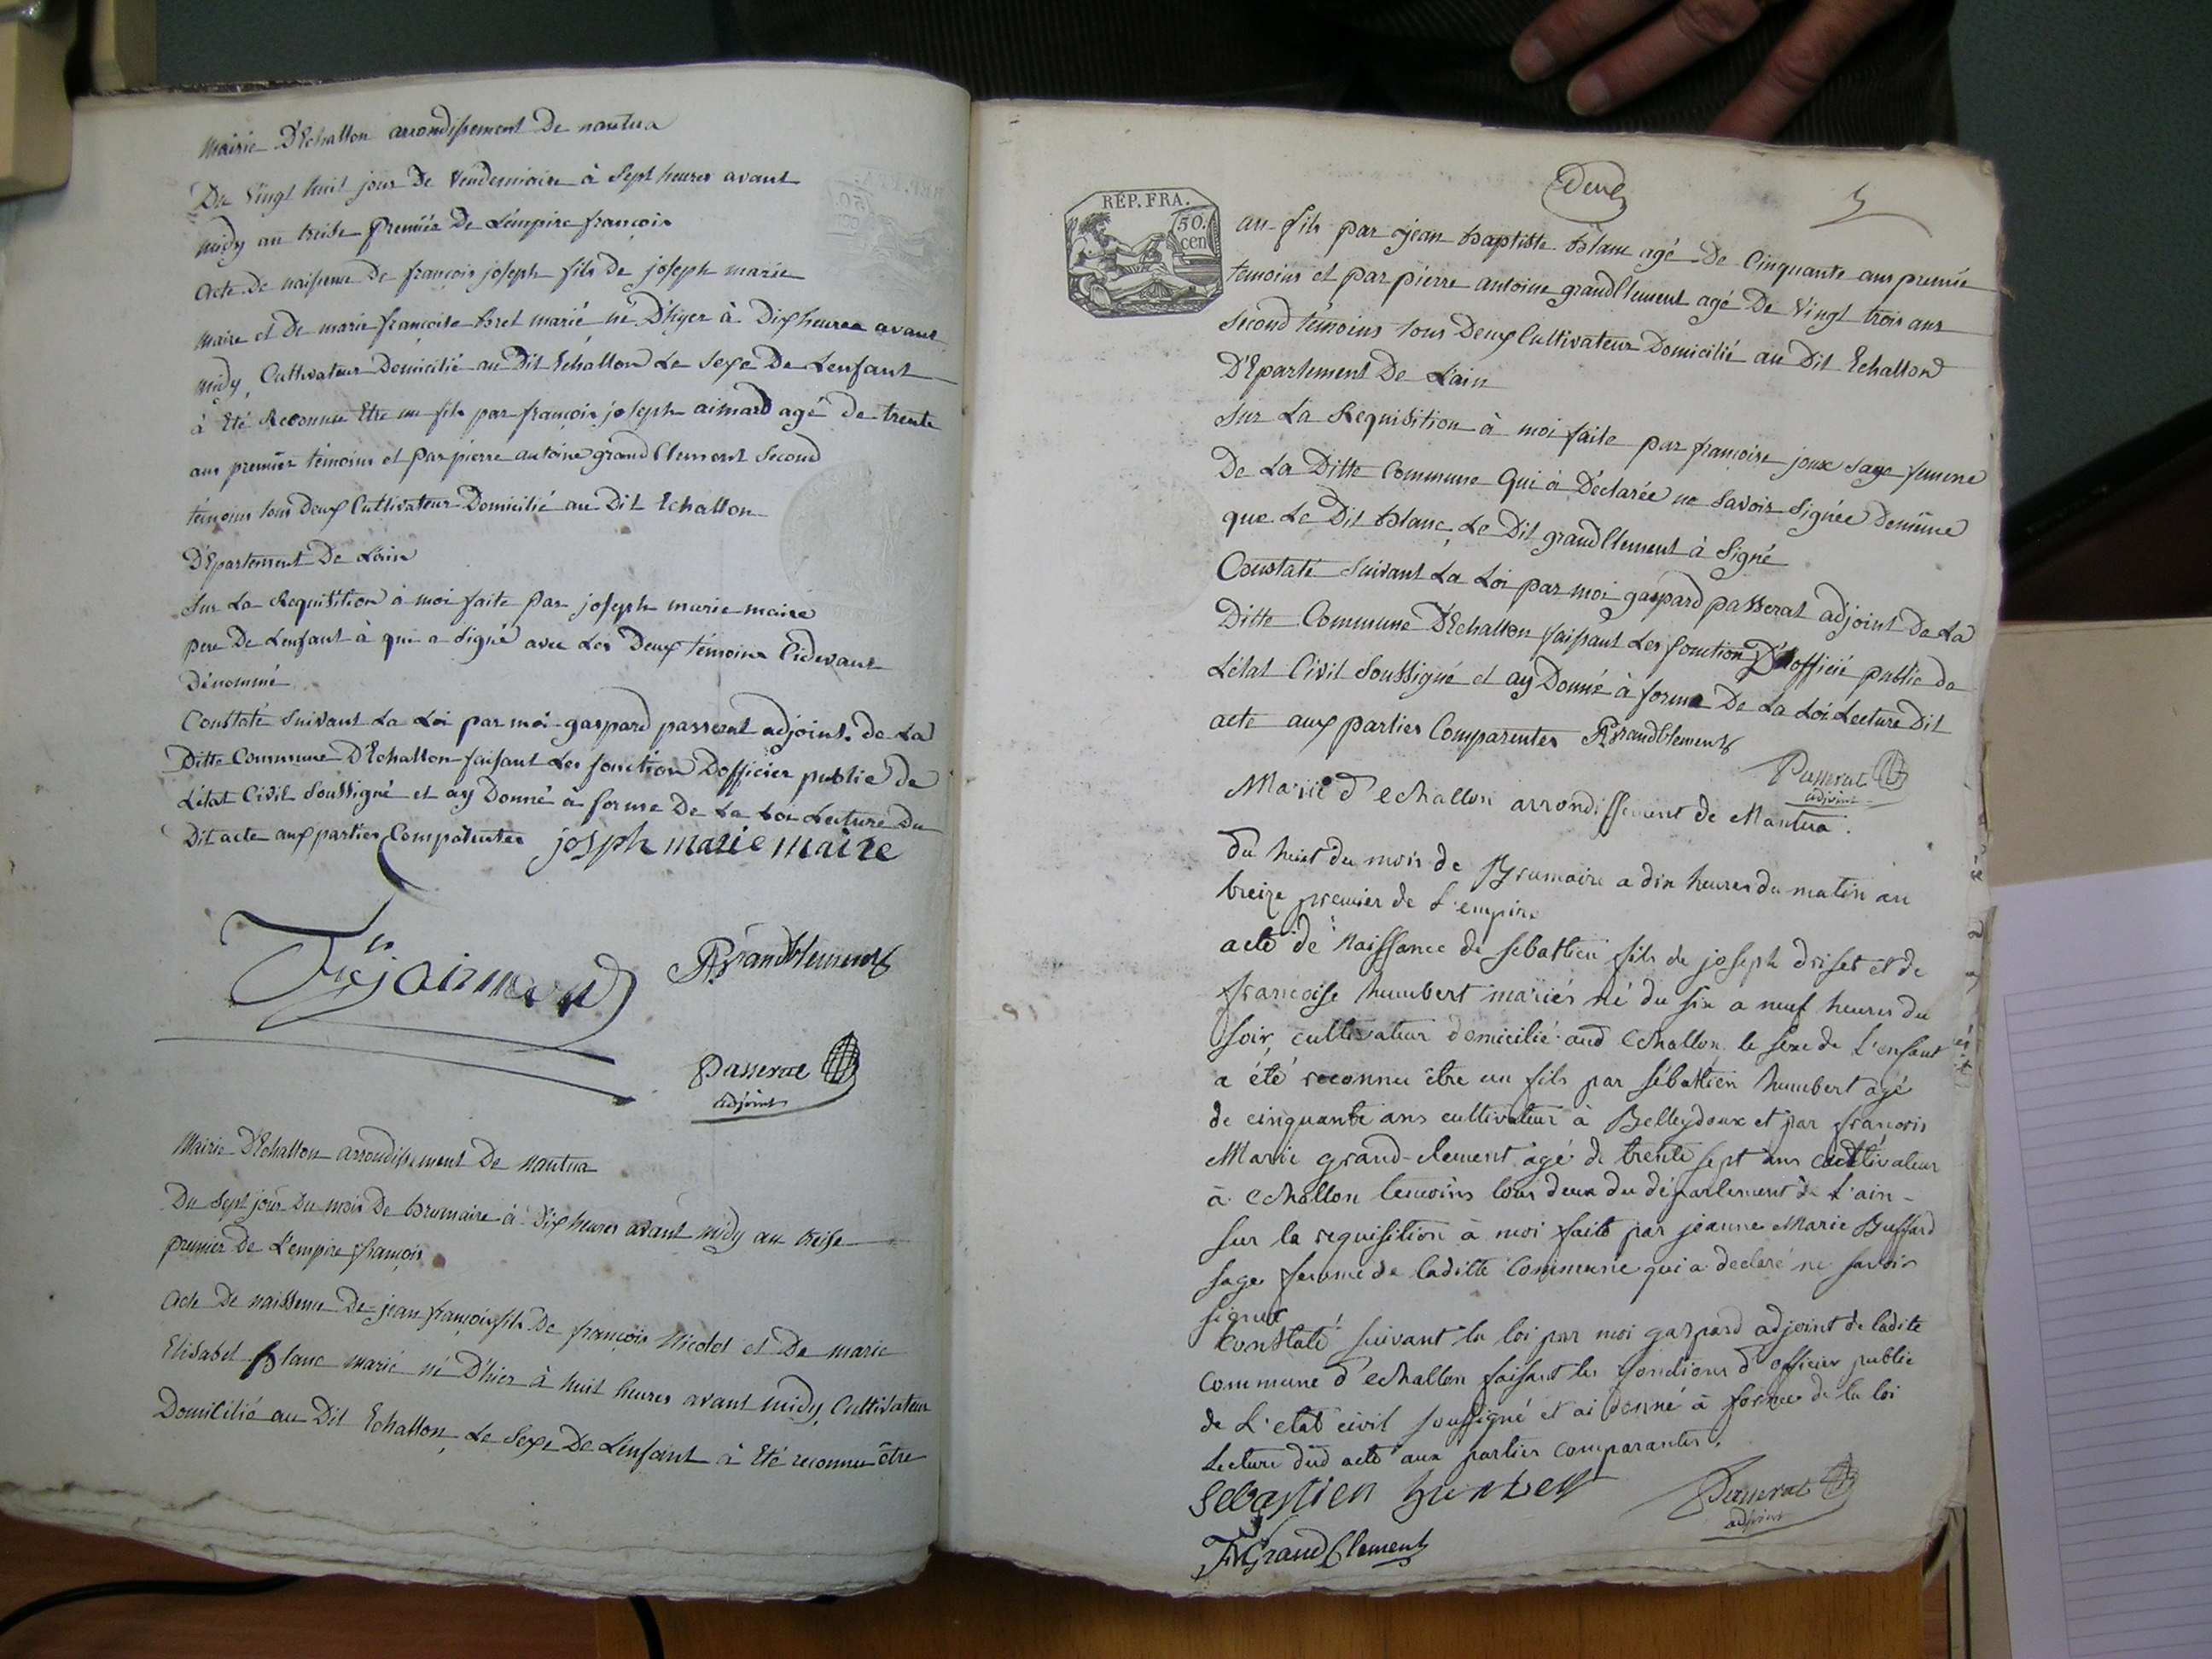 Mairie D'Echallon arrondissement De nantua
Du Vingt huit jour De Vendemiaire à Sept heures avant
midy an treise Premiér De L'émpire françois
Acte De naissence De françois joseph fils De joseph marie
maire et De marie françoise Bret marié né D'hyer à Dix heures avant
midy, Cultivateur Domicilié au Dit Echallon Le Sexe De Lenfant
à Eté Reconnue Etre un fils par françois joseph aimard agé de trente
ans premier témoins et par pierre antoine grand Clement Second
témoins tous Deux Cultivateur Domicilié au Dit Echallon
D'Epartement De Lain
Sur La Requisition à moi faite par joseph marie maire
pere De Lenfant à qui a Signé avec Les Deux témoins Cidevant
Dénommé
Constaté Suivant La Loi par moi gaspard passerat adjoint de La
Ditte Commune D'Echallon faisant Les fonction Dofficier public De
L'état Civil Soussigné et ay Donné à forme De La Loi Lecture Du
Dit acte aux parties Comparentes josph marie maire
Fçs j aimard
PAGrandClement
Passerat
adjoint
Mairie D'Echallon arrondissement De nantua
Du Sept jour Du mois De brumaire à Dix heures avant midy an treise
premier De L'empire françois
Acte De naissence De jean françois fils De françois Nicolet et De marie
Elisabet Blanc marié né D'hier à huit heures avant midy, Cultivateur
Domicilié au Dit Echallon, Le Sexe De Lenfant à Eté reconnue être
Deux
5
RÉP. FRA.
50.
cen
un fils par jean baptiste blanc agé De Cinquante ans premie
temoins et par pierre antoine grandClement agé De Vingt trois ans
Second témoins tous Deux Cultivateur Domicilié au Dit Echallon
D'Epartement De L'ain
Sur La Requisition à moi faite par françoise joux Sage femme
De La Ditte Commune Qui à Déclarée ne Savoir Signée Deméme
que Le Dit blanc, Le Dit grandClement à Signé
Constaté Suivant La Loi par moi gaspard passerat adjoint De La
Ditte Commune D'Echallon faisant Les fonction D'officié public de
L'état Civil Soussigné et ay Donné à forme De La Loi Lecture Dit
acte aux parties Comparentes PAGrandClement
Passerat
adjoint
Mairie d'echallon arrondissement de Nantua.
du huit du mois de Brumaire a dix heures du matin an
treize premier de L'empire
acte de naissance de sebastien fils de joseph driset et de
françoise humbert mariés né du six a neuf heures du
soir, cultivateur domicilié aud echallon, le sexe de L'enfant
a été reconnu être un fils par sébastien humbert agé
de cinquante ans cultivateur à Belleydoux et par françois
Marie grand-clement agé de trente sept ans cultivateur
à echallon temoins tous deux du département de L'ain -
sur la requisition à moi faite par jeanne Marie Buffard
sage femme de laditte Commune qui a declaré ne savoir
signer
Constaté suivant la loi par moi gaspard adjoint de ladite
commune d'echallon faisant les fonctions d'officier public
de L'etat civil soussigné et ai donné à forme de la loi
Lecture dud acte aux parties comparantes.
Sebastien humbert
Passerat
adjoint
FMGrandClement